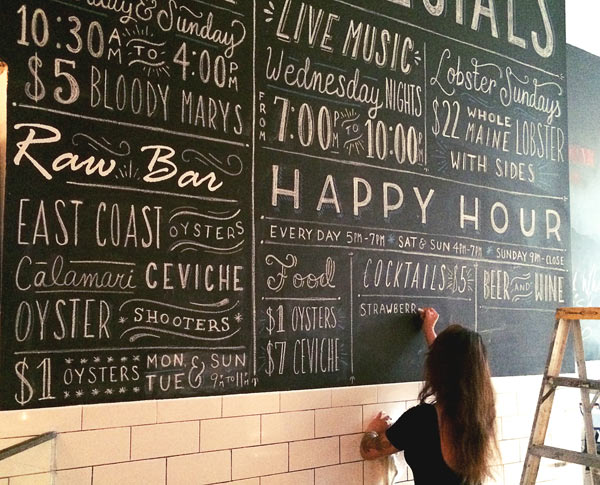 SPECIALS
day & Sunday
10:30AM TO 4:00PM
$5 BLOODY MARYS
Raw Bar
EAST COAST OYSTERS
Calamari CEVICHE
OYSTER SHOOTERS
$1 OYSTERS MON, TUE & SUN 9PM TO 11PM
LIVE MUSIC
Wednesday NIGHTS
FROM 7:00PM TO 10:00PM
Lobster Sundays
$22 WHOLE MAINE LOBSTER
WITH SIDES
HAPPY HOUR
EVERY DAY 5PM-7PM * SAT & SUN 4PM-7PM * SUNDAY 9PM-CLOSE
Food
$1 OYSTERS
$7 CEVICHE
COCKTAILS $5
STRAWBERR
BEER AND WINE